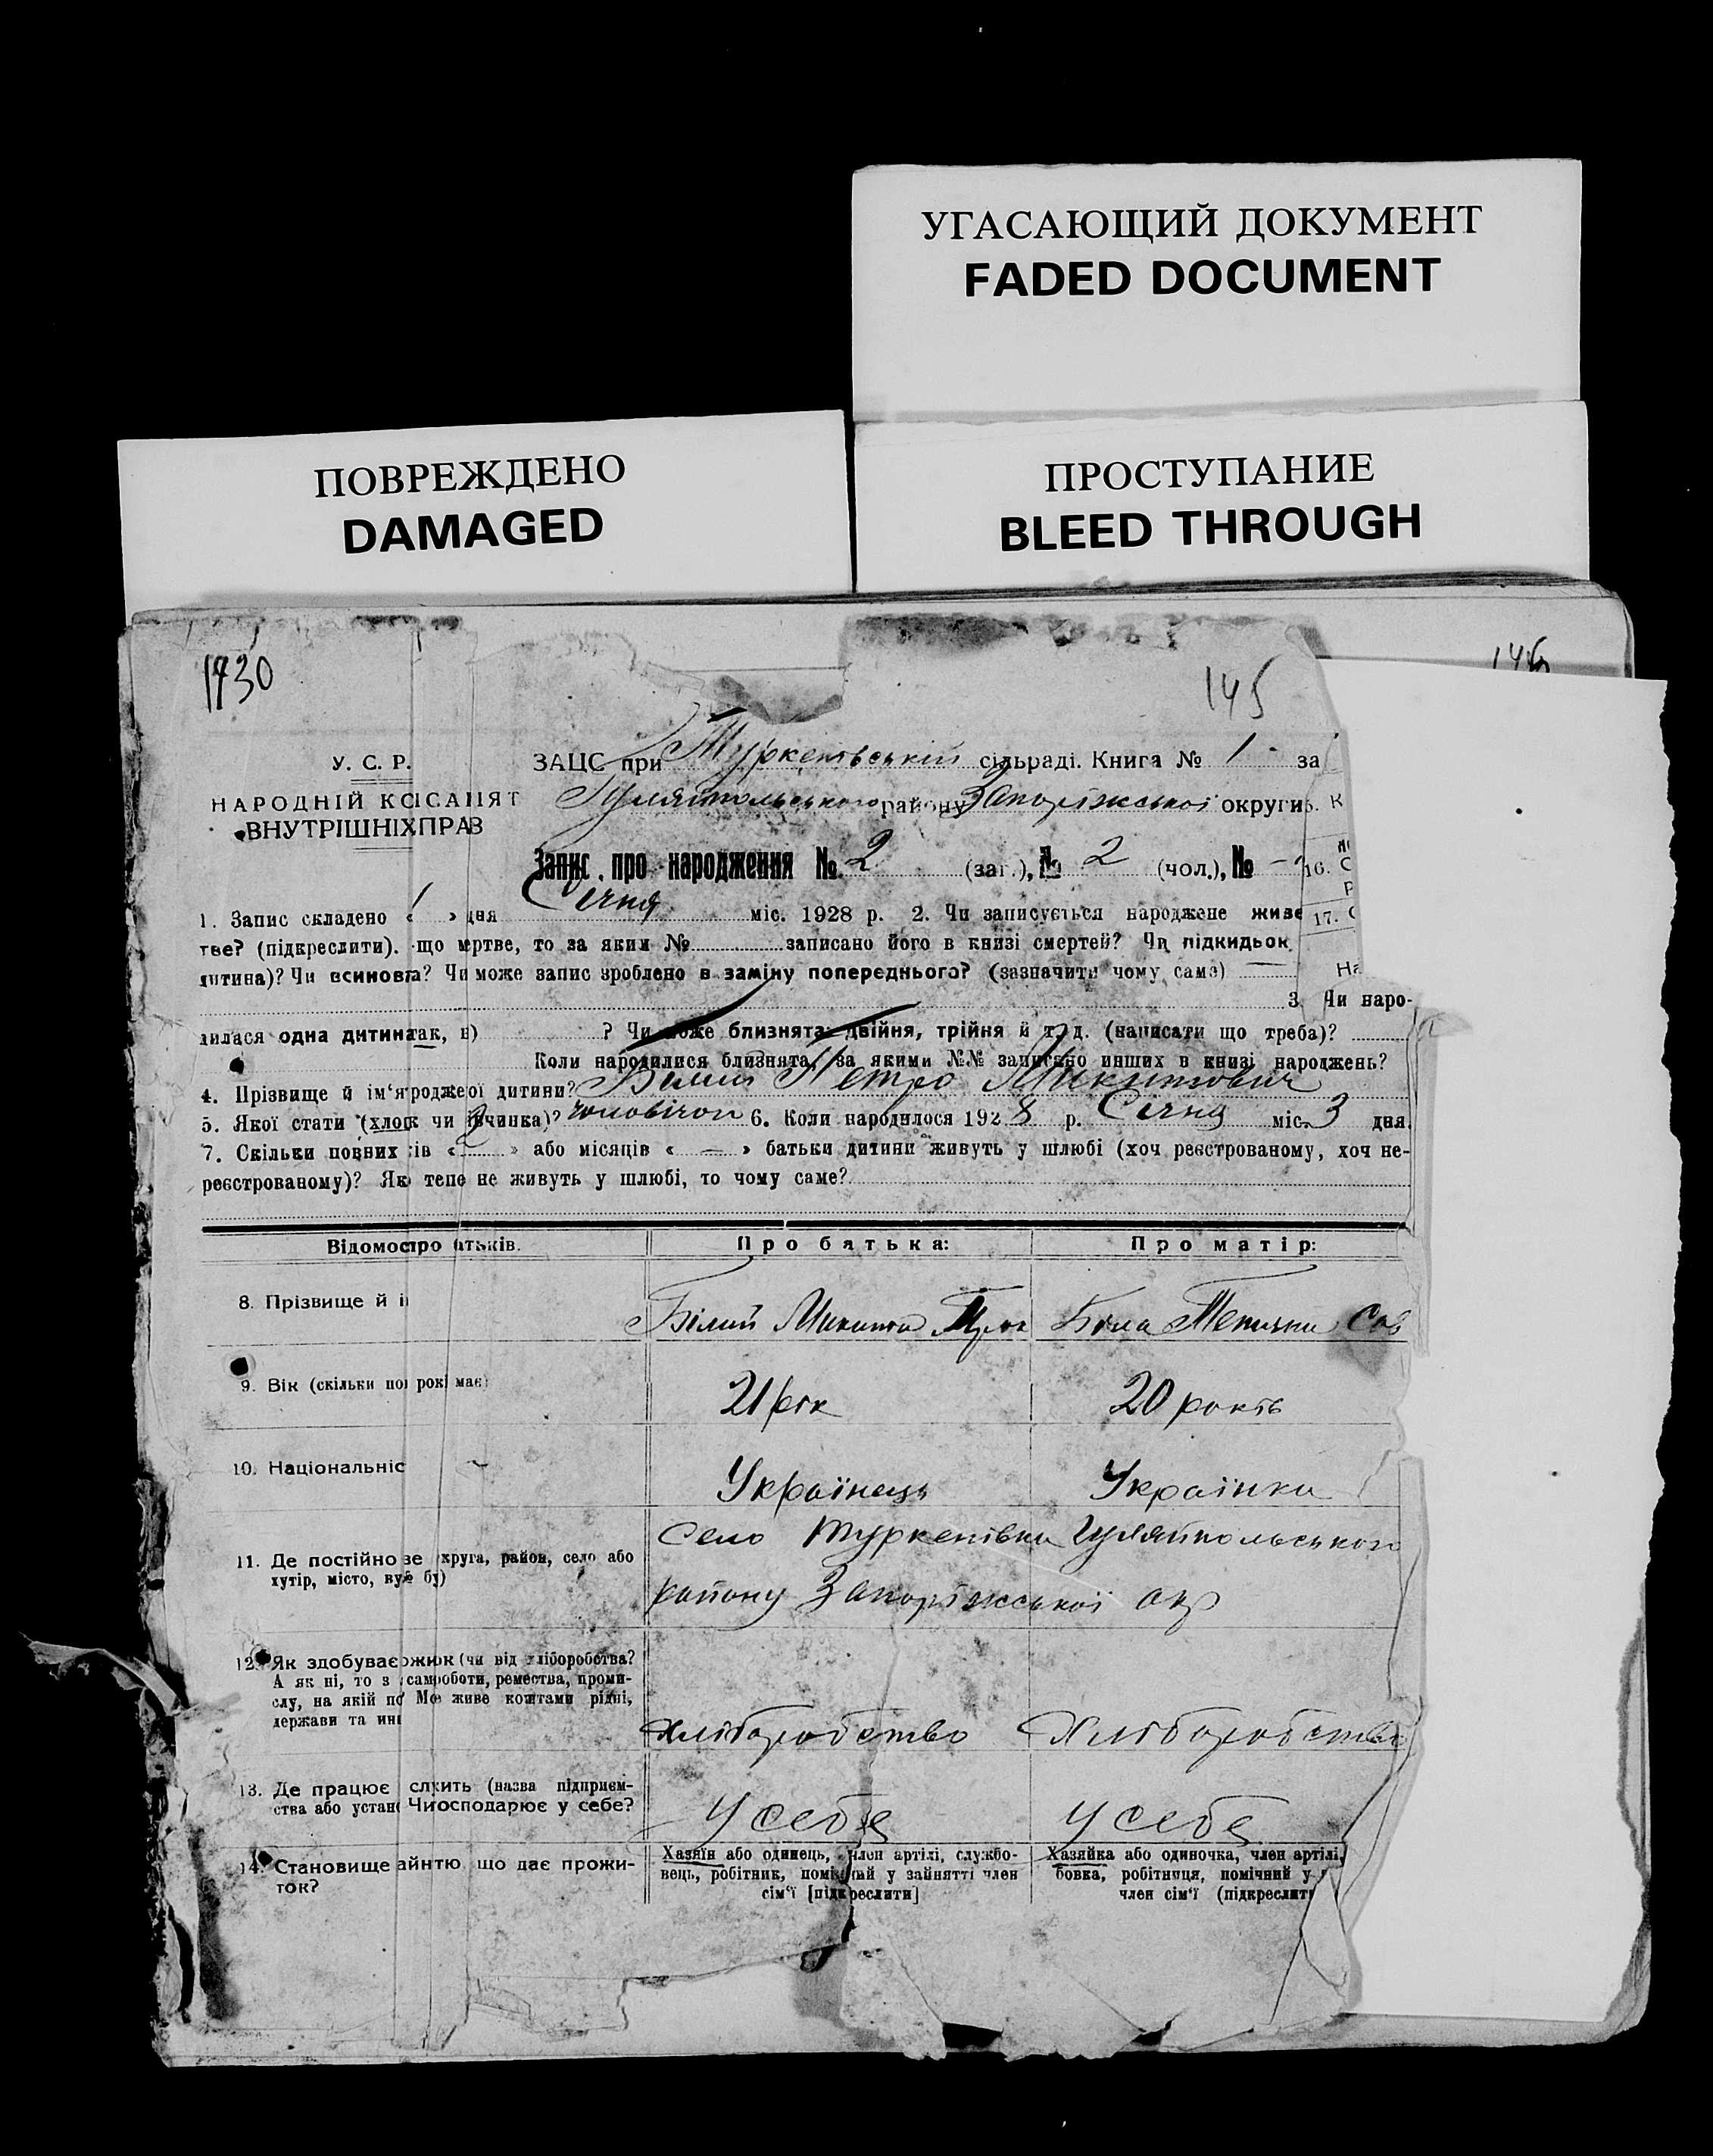 УГАСАЮЩИЙ ДОКУМЕНТ
FADED DOCUMENT
ПОВРЕЖДЕНО
DAMAGED
ПРОСТУПАНИЕ
BLEED THROUGH
1730
145
У. С. Р.
НАРОДНІЙ
ВНУТРІШНІХ
ЗАЦС при Туркенівській сільраді. Книга № 1 - за
Гуляйпольського району Запоріжської округи
Запис про народження № 2 (заг.), № 2 (чол.), № -
16.
17.
1. Запис складено « » дня Січня міс. 1928 р. 2. Чи записується народжене живе
тве? (підкреслити). що мертве, то за яким № записано його в книзі смертей? Чи підкидьок
дитина)? Чи Чи може запис зроблено в заміну попереднього? (зазначити чому саме)
3. Чи наро-
дилася одна дитина так, ? Чи може близнята двійня, трійня й т. д. (написати що треба)?
Коли народилися близнята, за якими №№ записано инших в книзі народжень?
4. Прізвище й дитини? Білий Петро Микитович
5. Якої стати (хлопчик чи дівчинка)? чоловічої 6. Коли народилося 1928 р. Січня міс. 3 дня.
7. Скільки повних « » або місяців « — » батьки дитини живуть у шлюбі (хоч реєстрованому, хоч не-
реєстрованому)? не живуть у шлюбі, то чому саме?
Про батька:
Про матір:
8. Прізвище й
Білий Микита
Біла
9. Вік (скільки має
21 рік
20 років
10.
Українець
Українка
11. Де постійно округа, район, село або
хутір, місто,
село Туркенівка Гуляйпольського
району Запоріжської окр
12. Як здобуває (чи від хліборобства?
А як ні, то з роботи, ремества, проми-
слу, на якій живе коштами рідні,
держави та
хліборобство
Хліборобство
13. Де працює (назва підприєм-
ства або у себе?
у себе
у себе
14. Становище що дає прожи-
ток?
Хазяїн або одинець, член артілі, службо-
вець, робітник, помічний у зайнятті член
сім'ї [підкреслити]
Хазяйка або одиночка, член артілі,
бовка, робітниця, помічний у
член сім'ї